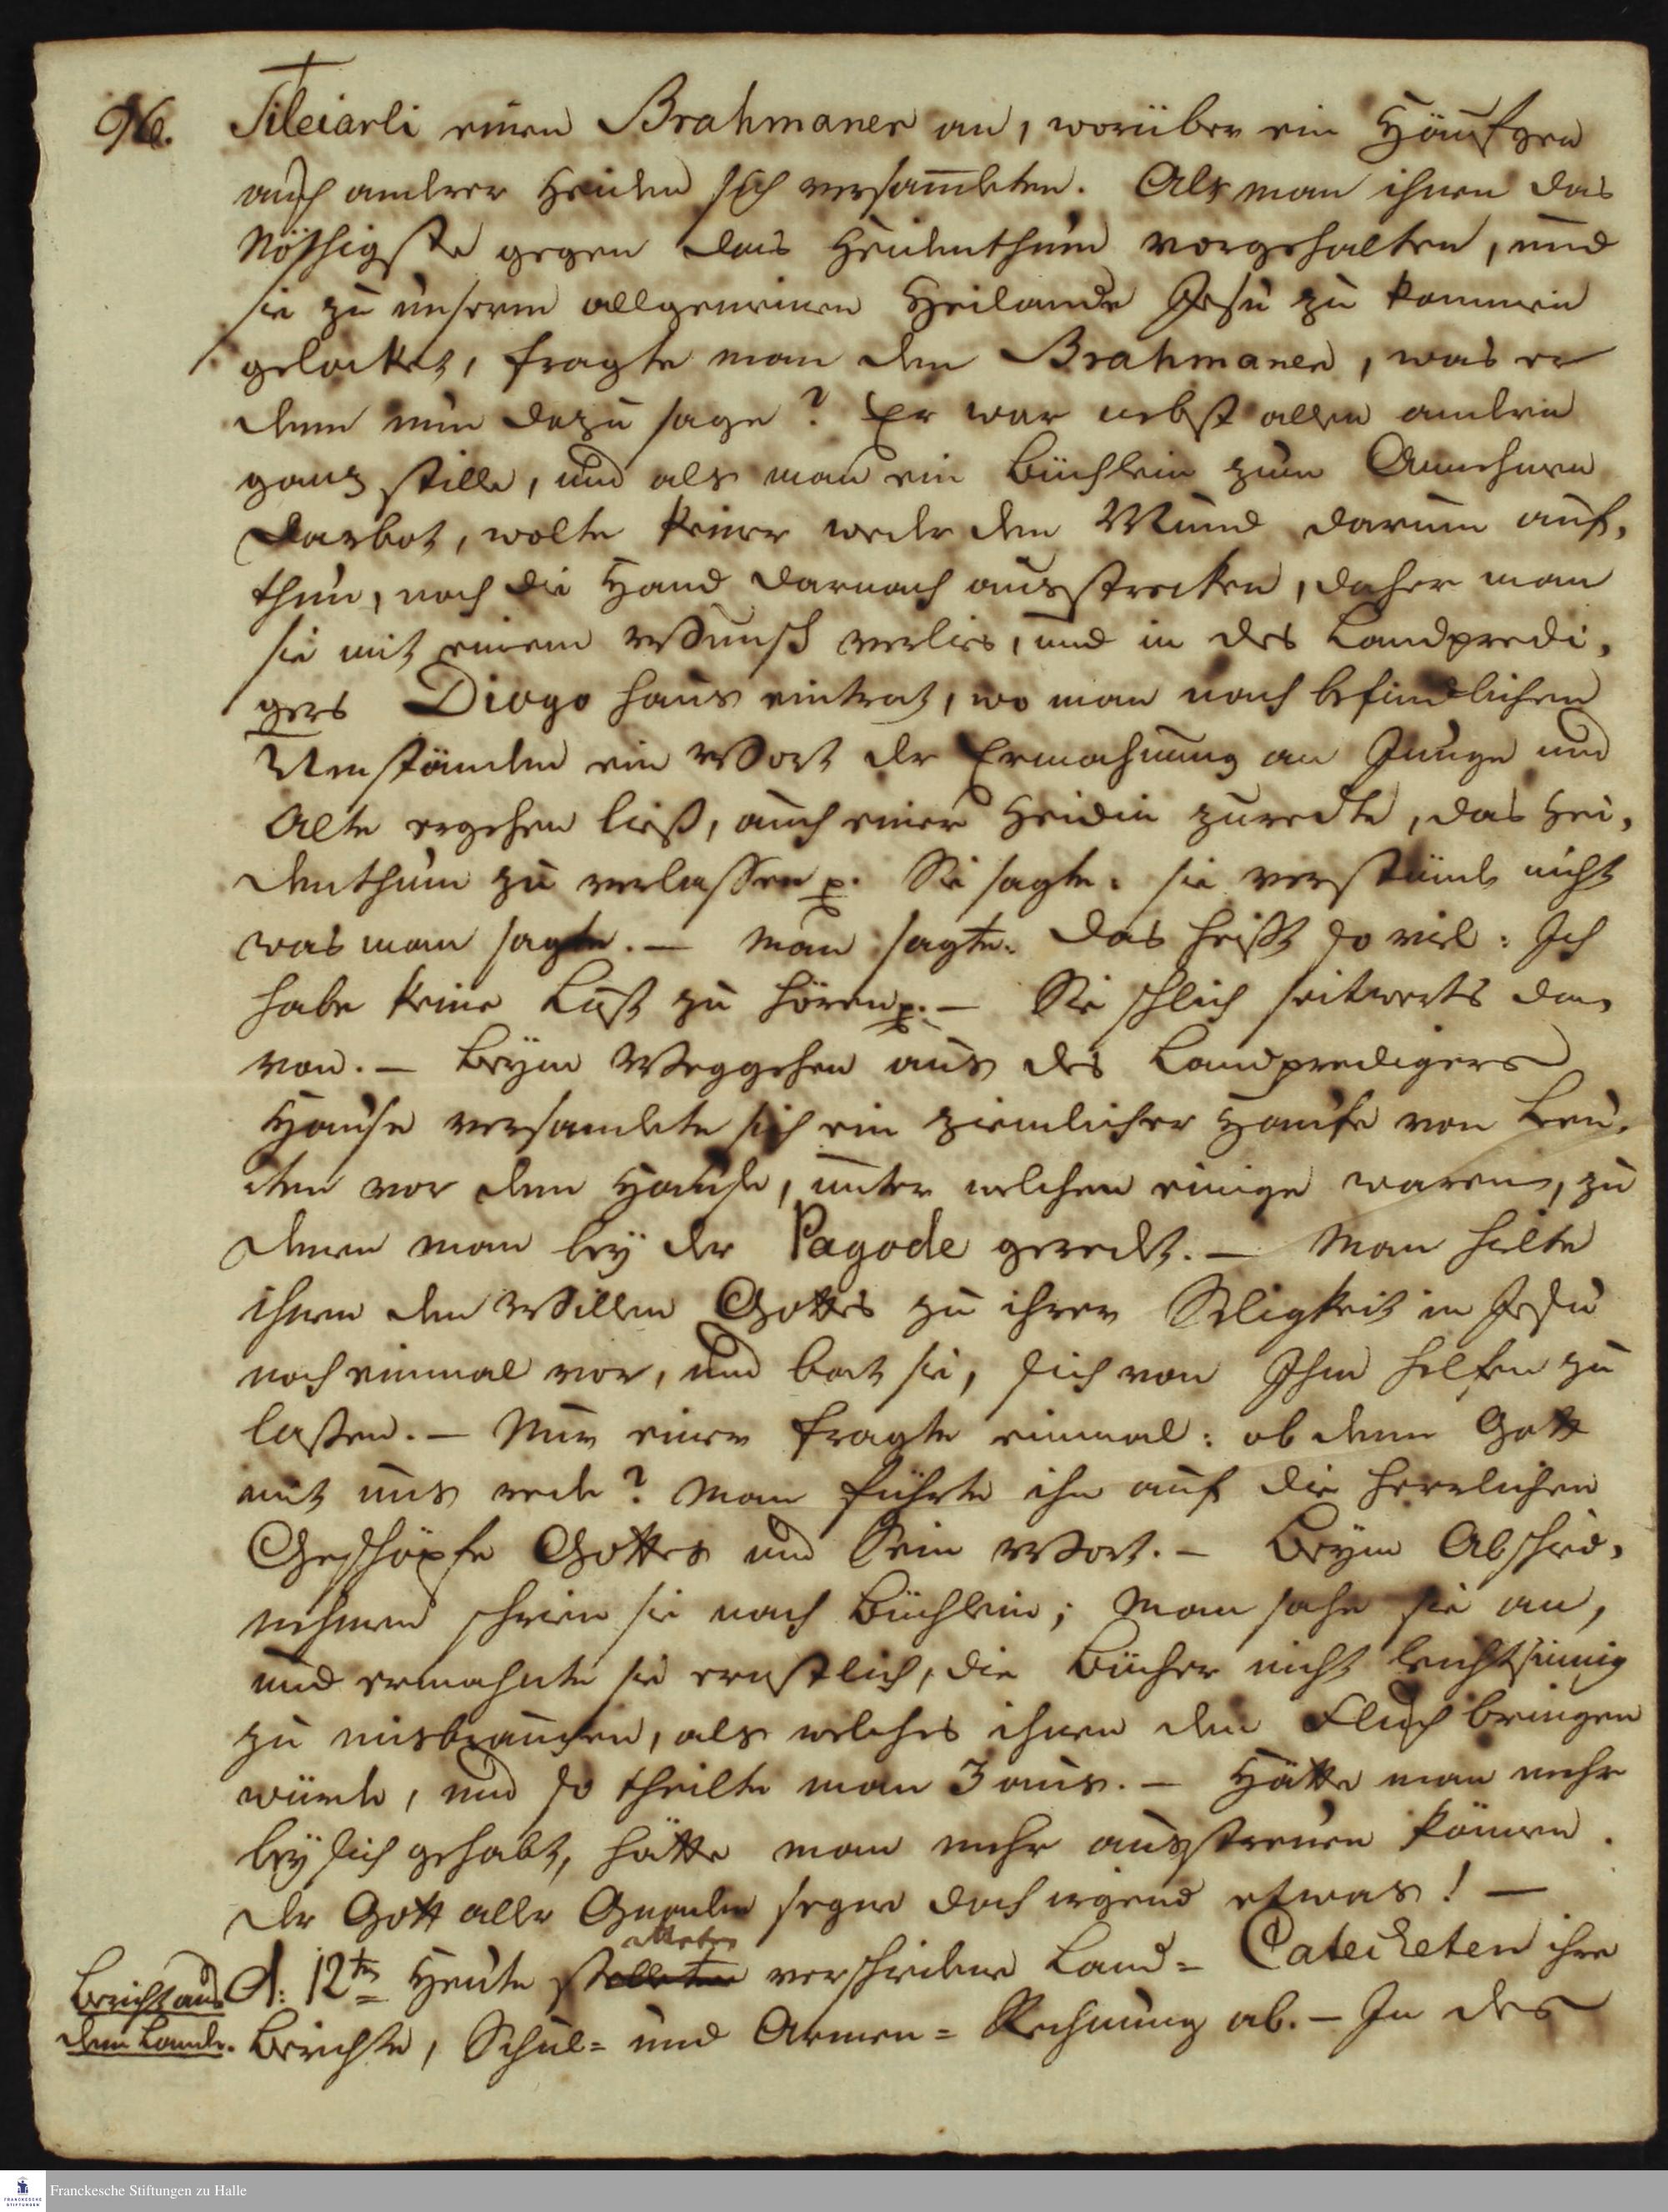 96.
Tileiarli einen Brahmaner an, worüber ein Häufgen
auch anderer Heiden sich versam̄leten. Als man ihnen das
Nöthigste gegen das Heidenthum vorgehalten, und
sie zu unserm allgemeinen Heilande Jesu zu kommen
gelocket, fragte man den Brahmanen, was er
denn nun dazu sage? Er war nebst allen andern
ganz stille, und als man ein Büchlein zum Annehmen
darbot, wolte keiner weder den Mund darum auf,
thun, noch die Hand darnach ausstrecken, daher man
sie mit einem Wunsch verlies, und in des Landpredi,
gers Diogo Haus eintrat, wo man nach befindlichen
Umständen ein Wort der Ermahnung an Junge und
Alte ergehen ließ, auch einer Heidin zuredte, das Hei,
denthum zu verlassen p. Sie sagte: sie verstünde nicht
was man sagte. — Man sagte: das heißt so viel: Ich
habe keine Lust zu hören p. — Sie schlich seitwerts da,
von. — Beym Weggehen aus des Landpredigers
Hause versamlete sich ein ziemlicher Haufe von Leu,
ten vor dem Hause, unter welchen einige waren, zu
denen man bey der Pagode geredt. — Man hielte
ihnen den Willen Gottes zu ihrer Seligkeit in Jesu
noch einmal vor, und bat sie, sich von Ihm helfen zu
laßen. — Nur einer fragte einmal: ob denn Gott
mit uns rede? Man führte ihn auf die herrlichen
Geschöpfe Gottes und Sein Wort. — Beym Abschied,
nehmen schrien sie nach Büchlein; Man sahe sie an,
und ermahnte sie ernstlich, die Bücher nicht leichtsinnig
zu misbrauchen, als welches ihnen den Fluch bringen
würde, und so theilte man 3 aus. — Hätte man mehr
bey sich gehabt, hätte man mehr ausstreuen können.
Der Gott aller Gnaden segne doch irgend etwas! —
Bericht aus
dem Lande.
d. 12ten Heute statteten verschiedene Land- Catecheten ihre
Berichte, Schul- und Armen- Rechnung ab. — In des
Franckesche Stiftungen zu Halle